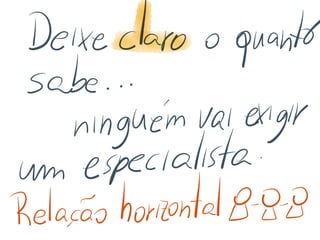 Deixe claro o quanto
sabe...
ninguém vai exigir
um especialista.
Relação horizontal